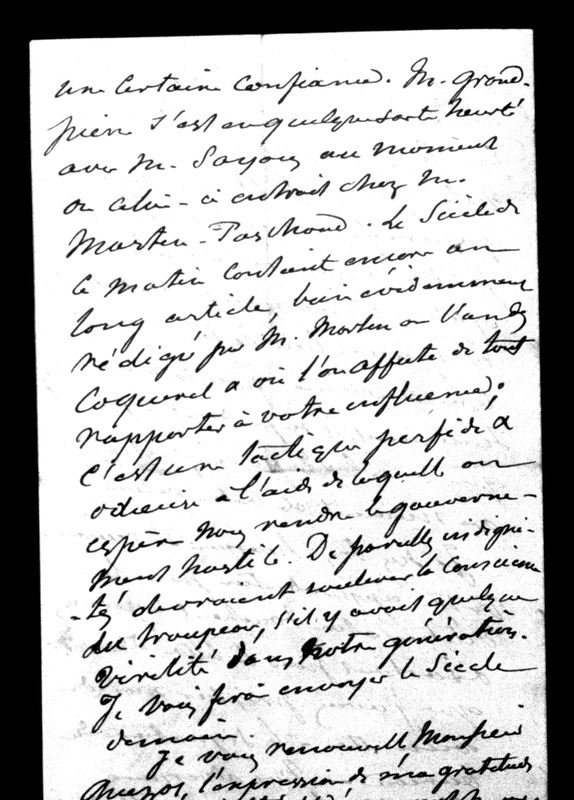 une certaine confiance. M. Grand-
pierre s'est en quelque sorte heurté
avec M. Sayous au moment
où celui-ci entrait chez M.
Martin-Paschoud. Le Siècle de
ce matin contient encore un
long article, bien évidemment
rédigé par M. Martin ou l'un des
Coquerel & où l'on affecte de tout
rapporter à votre influence;
C'est une tactique perfide &
odieuse à l'aide de laquelle on
espère nous rendre le gouverne-
ment hostile. De pareilles indigni-
-tés devraient soulever la conscience
du troupeau, s'il y avait quelque
virilité dans notre génération.
Je vous ferai envoyer le Siècle
demain.
Je vous renouvelle Monsieur
Guizot, l'expression de ma gratitude